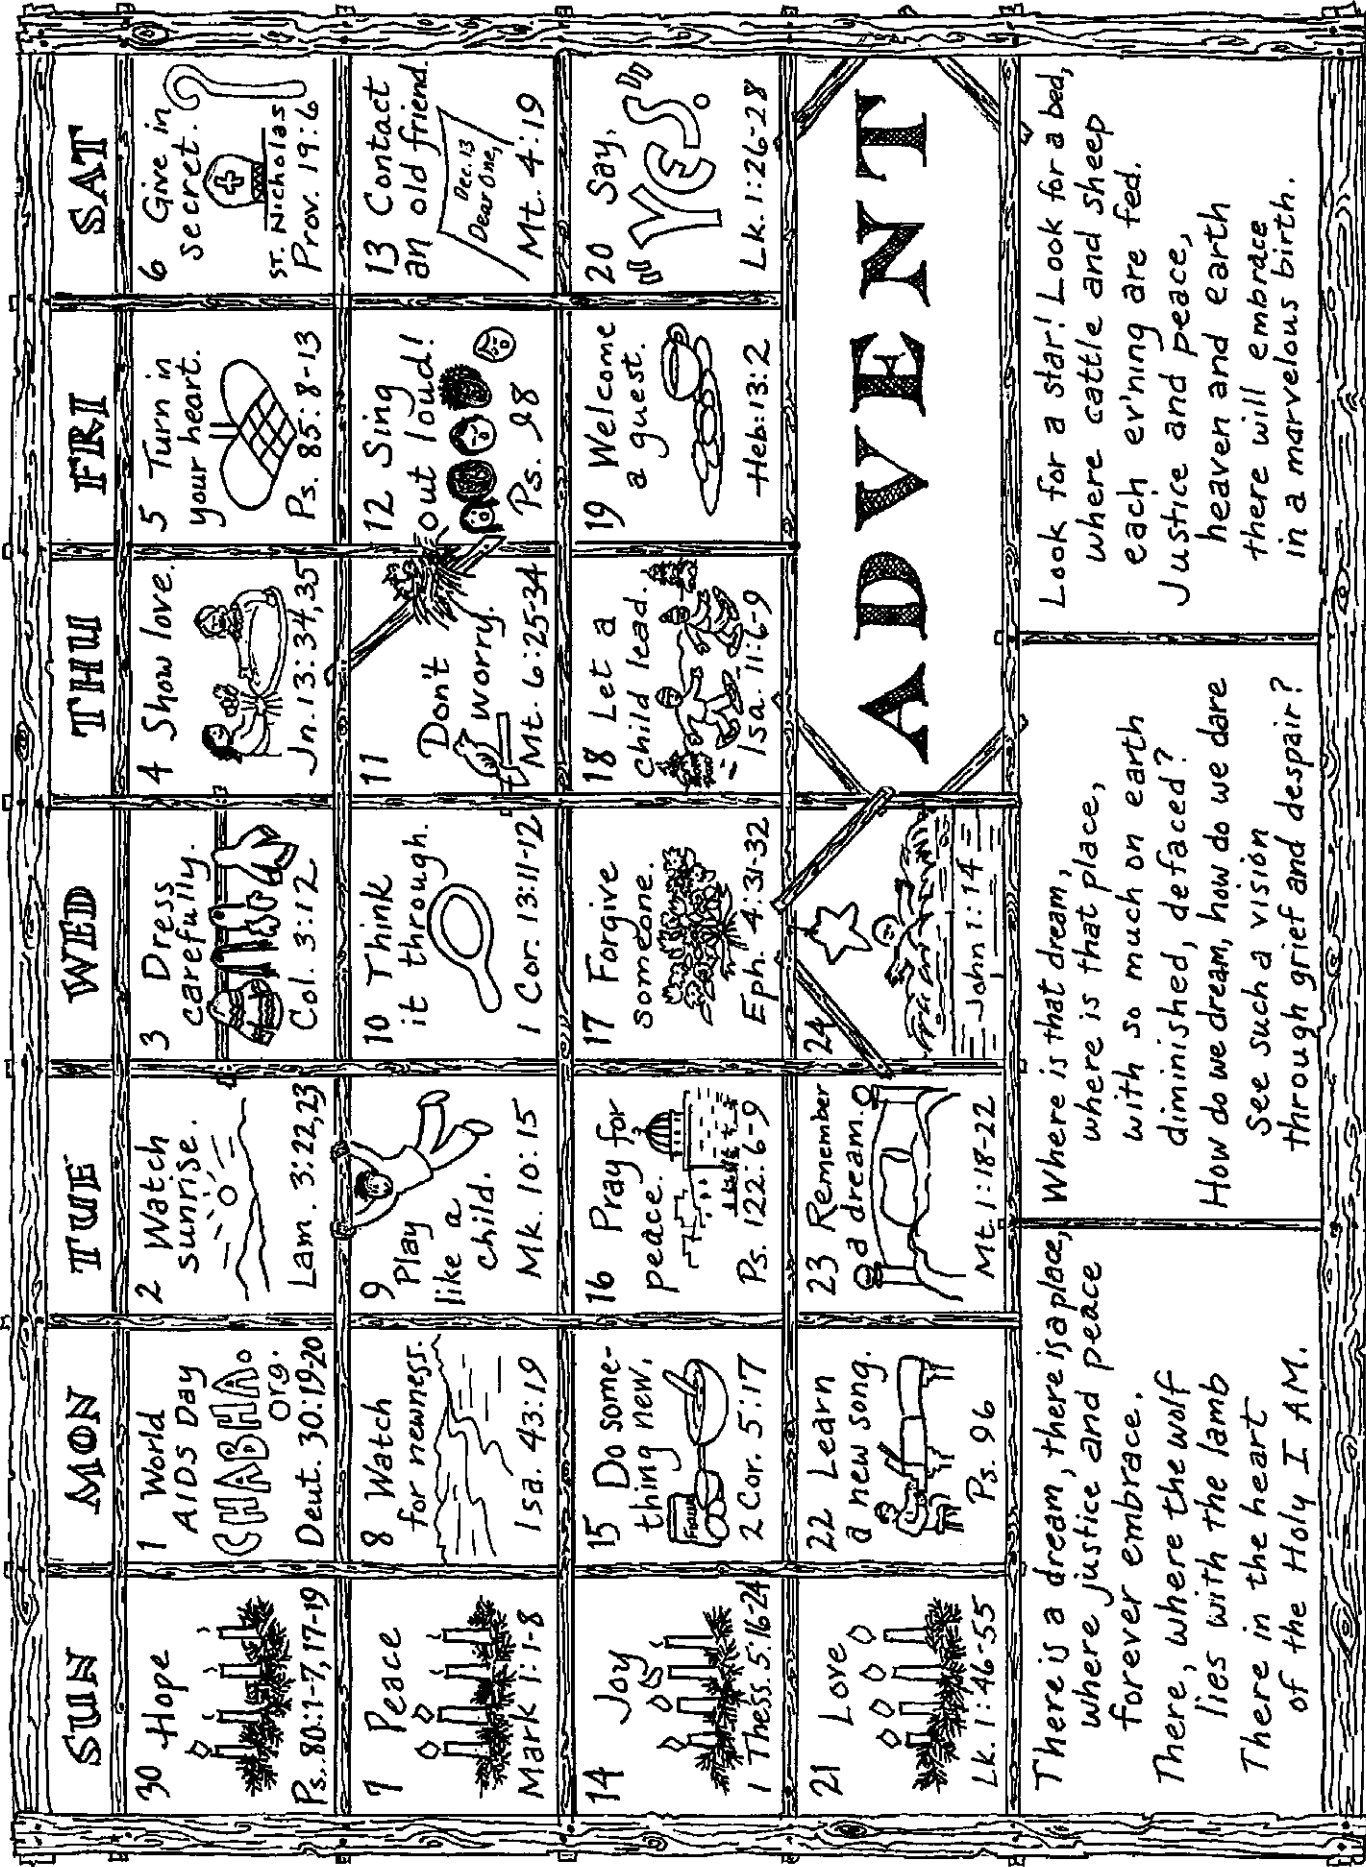 SUN MON TUE WED THU FRI SAT
30 Hope
Ps. 80:1-7, 17-19
1 World
AIDS Day
CHABHA.
org.
Deut. 30:19-20
2 Watch
sunrise.
Lam. 3:22,23
3 Dress
carefully.
Col. 3:12
4 Show love.
Jn. 13:34,35
5 Turn in
your heart.
Ps. 85:8-13
6 Give in
secret.
ST. Nicholas
Prov. 19:6
7 Peace
Mark 1:1-8
8 Watch
for newness.
Isa. 43:19
9 Play
like a
child.
Mk. 10:15
10 Think
it through.
1 Cor. 13:11-12
11 Don't
worry.
Mt. 6:25-34
12 Sing
out loud!
Ps. 98
13 Contact
an old friend.
Dec. 13
Dear One,
Mt. 4:19
14 Joy
1 Thess. 5:16-24
15 Do some-
thing new.
Flour
2 Cor. 5:17
16 Pray for
peace.
Ps. 122:6-9
17 Forgive
someone.
Eph. 4:31-32
18 Let a
child lead.
Isa. 11:6-9
19 Welcome
a guest.
Heb: 13:2
20 Say,
YES.
Lk. 1:26-28
21 Love
Lk. 1:46-55
22 Learn
a new song.
Ps. 96
23 Remember
a dream.
Mt. 1:18-22
24
John 1:14
ADVENT
There is a dream, there is a place,
where justice and peace
forever embrace.
There, where the wolf
lies with the lamb
There in the heart
of the Holy I AM.
Where is that dream,
where is that place,
with so much on earth
diminished, defaced?
How do we dream, how do we dare
See such a vision
through grief and despair?
Look for a star! Look for a bed,
where cattle and sheep
each ev'ning are fed.
Justice and peace,
heaven and earth
there will embrace
in a marvelous birth.